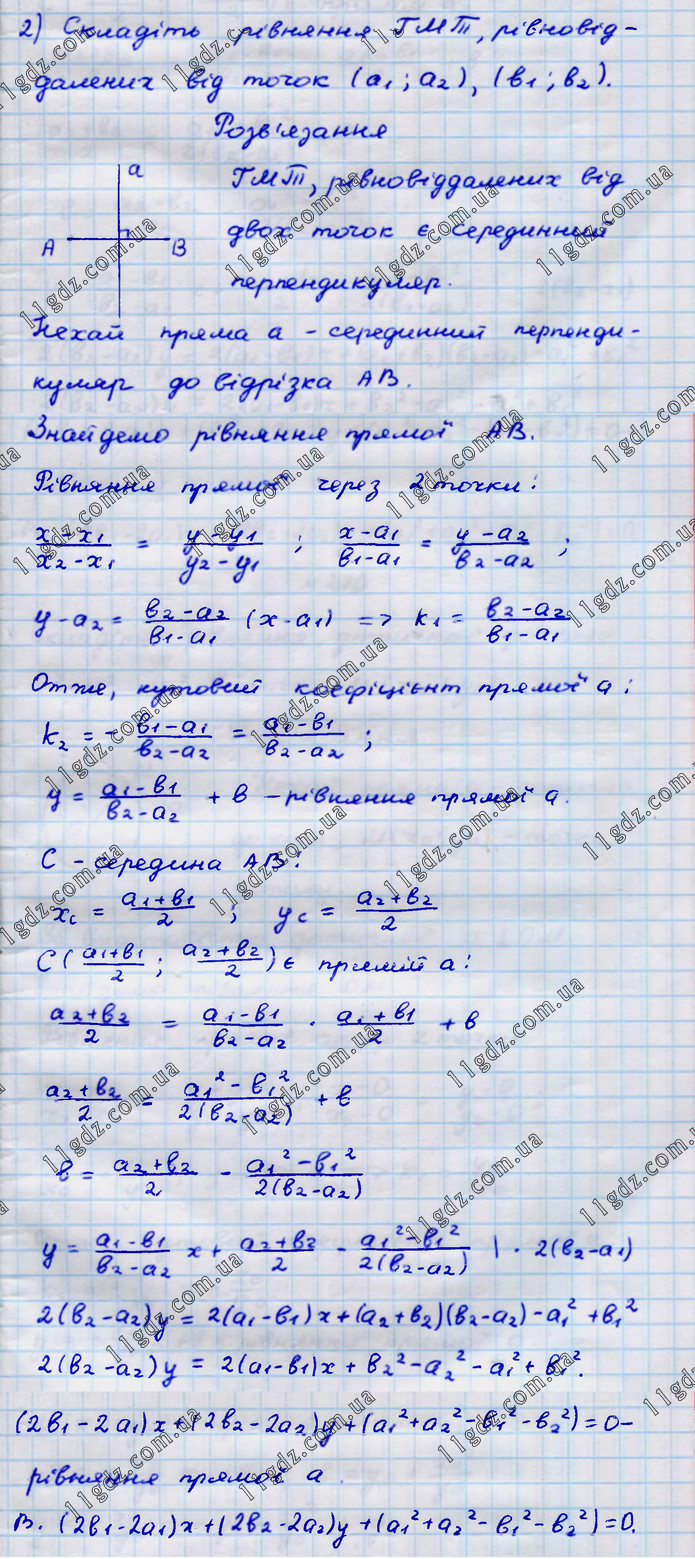 2) Складіть рівняння ГМТ, рівновід-
далених від точок (a₁; a₂), (в₁; в₂).
Розв'язання
a
A
B
ГМТ, рівновіддалених від
двох точок є серединний
перпендикуляр.
Нехай пряма a - серединний перпенди-
куляр до відрізка AB.
Знайдемо рівняння прямої AB.
Рівняння прямої через 2 точки:
(x-x₁)/(x₂-x₁) = (y-y₁)/(y₂-y₁) ; (x-a₁)/(в₁-a₁) = (y-a₂)/(в₂-a₂) ;
y-a₂ = (в₂-a₂)/(в₁-a₁) (x-a₁) => k₁ = (в₂-a₂)/(в₁-a₁)
Отже, кутовий коефіцієнт прямої a:
k₂ = - (в₁-a₁)/(в₂-a₂) = (a₁-в₁)/(в₂-a₂) ;
y = (a₁-в₁)/(в₂-a₂) + в - рівняння прямої a.
C - середина AB:
x_c = (a₁+в₁)/2 ; y_c = (a₂+в₂)/2
C ((a₁+в₁)/2 ; (a₂+в₂)/2) є прямій a:
(a₂+в₂)/2 = (a₁-в₁)/(в₂-a₂) · (a₁+в₁)/2 + в
(a₂+в₂)/2 = (a₁²-в₁²)/(2(в₂-a₂)) + в
в = (a₂+в₂)/2 - (a₁²-в₁²)/(2(в₂-a₂))
y = (a₁-в₁)/(в₂-a₂) x + (a₂+в₂)/2 - (a₁²-в₁²)/(2(в₂-a₂)) | · 2(в₂-a₁)
2(в₂-a₂)y = 2(a₁-в₁)x + (a₂+в₂)(в₂-a₂) - a₁² + в₁²
2(в₂-a₂)y = 2(a₁-в₁)x + в₂² - a₂² - a₁² + в₁².
(2в₁-2a₁)x + (2в₂-2a₂)y + (a₁²+a₂²-в₁²-в₂²) = 0 -
рівняння прямої a.
В. (2в₁-2a₁)x + (2в₂-2a₂)y + (a₁²+a₂²-в₁²-в₂²) = 0.
11gdz.com.ua